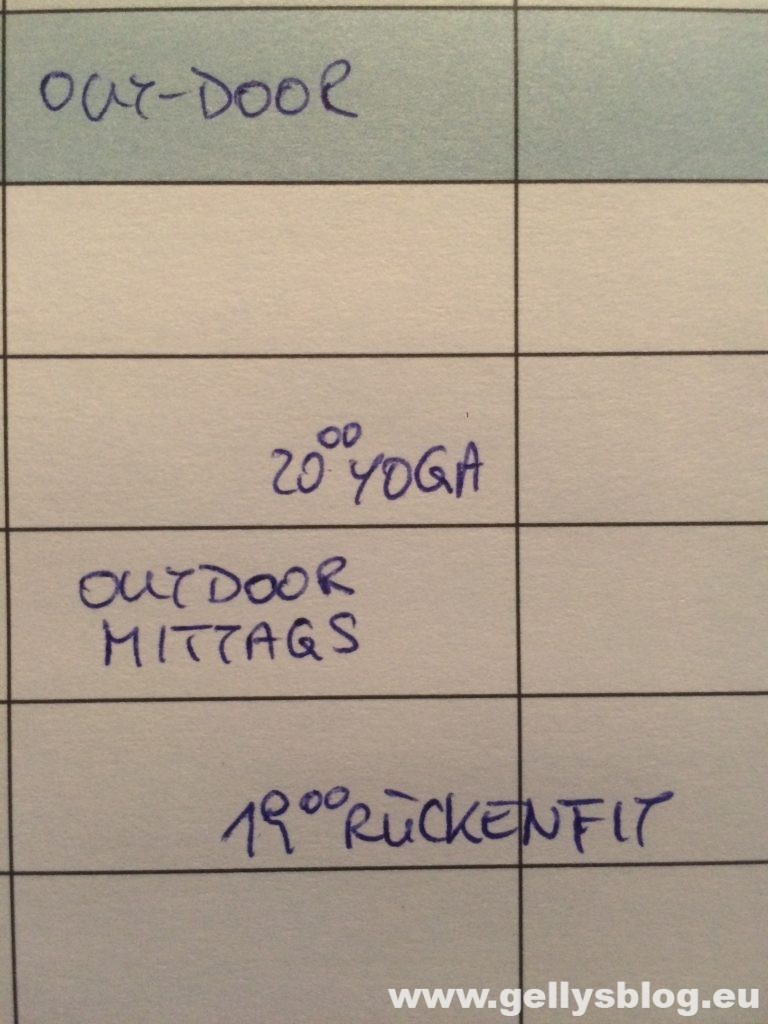 OUT-DOOR
20⁰⁰ YOGA
OUTDOOR
MITTAGS
19⁰⁰ RÜCKENFIT
www.gellysblog.eu